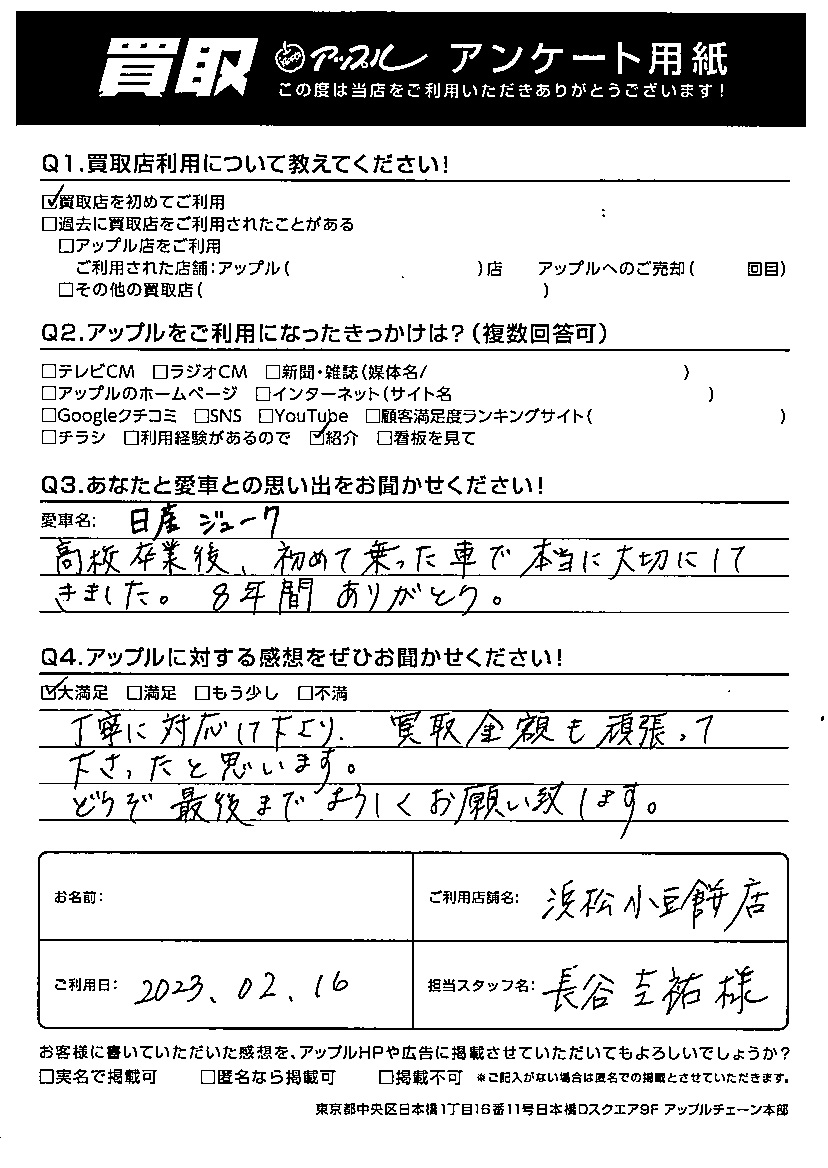 買取 アップル アンケート用紙
この度は当店をご利用いただきありがとうございます!
Q1.買取店利用について教えてください!
☑買取店を初めてご利用
□過去に買取店をご利用されたことがある
□アップル店をご利用
ご利用された店舗:アップル( )店 アップルへのご売却( 回目)
□その他の買取店( )
Q2.アップルをご利用になったきっかけは?(複数回答可)
□テレビCM □ラジオCM □新聞・雑誌(媒体名/ )
□アップルのホームページ □インターネット(サイト名 )
□Googleクチコミ □SNS □YouTube □顧客満足度ランキングサイト( )
□チラシ □利用経験があるので ☑紹介 □看板を見て
Q3.あなたと愛車との思い出をお聞かせください!
愛車名: 日産 ジューク
高校卒業後、初めて乗った車で本当に大切にして
きました。8年間ありがとう。
Q4.アップルに対する感想をぜひお聞かせください!
☑大満足 □満足 □もう少し □不満
丁寧に対応して下さり、買取金額も頑張って
下さったと思います。
どうぞ最後までよろしくお願い致します。
お名前: ご利用店舗名: 浜松小豆餅店
ご利用日: 2023.02.16 担当スタッフ名: 長谷圭祐様
お客様に書いていただいた感想を、アップルHPや広告に掲載させていただいてもよろしいでしょうか?
□実名で掲載可 □匿名なら掲載可 □掲載不可 ※ご記入がない場合は匿名での掲載とさせていただきます。
東京都中央区日本橋1丁目16番11号日本橋Dスクエア9F アップルチェーン本部